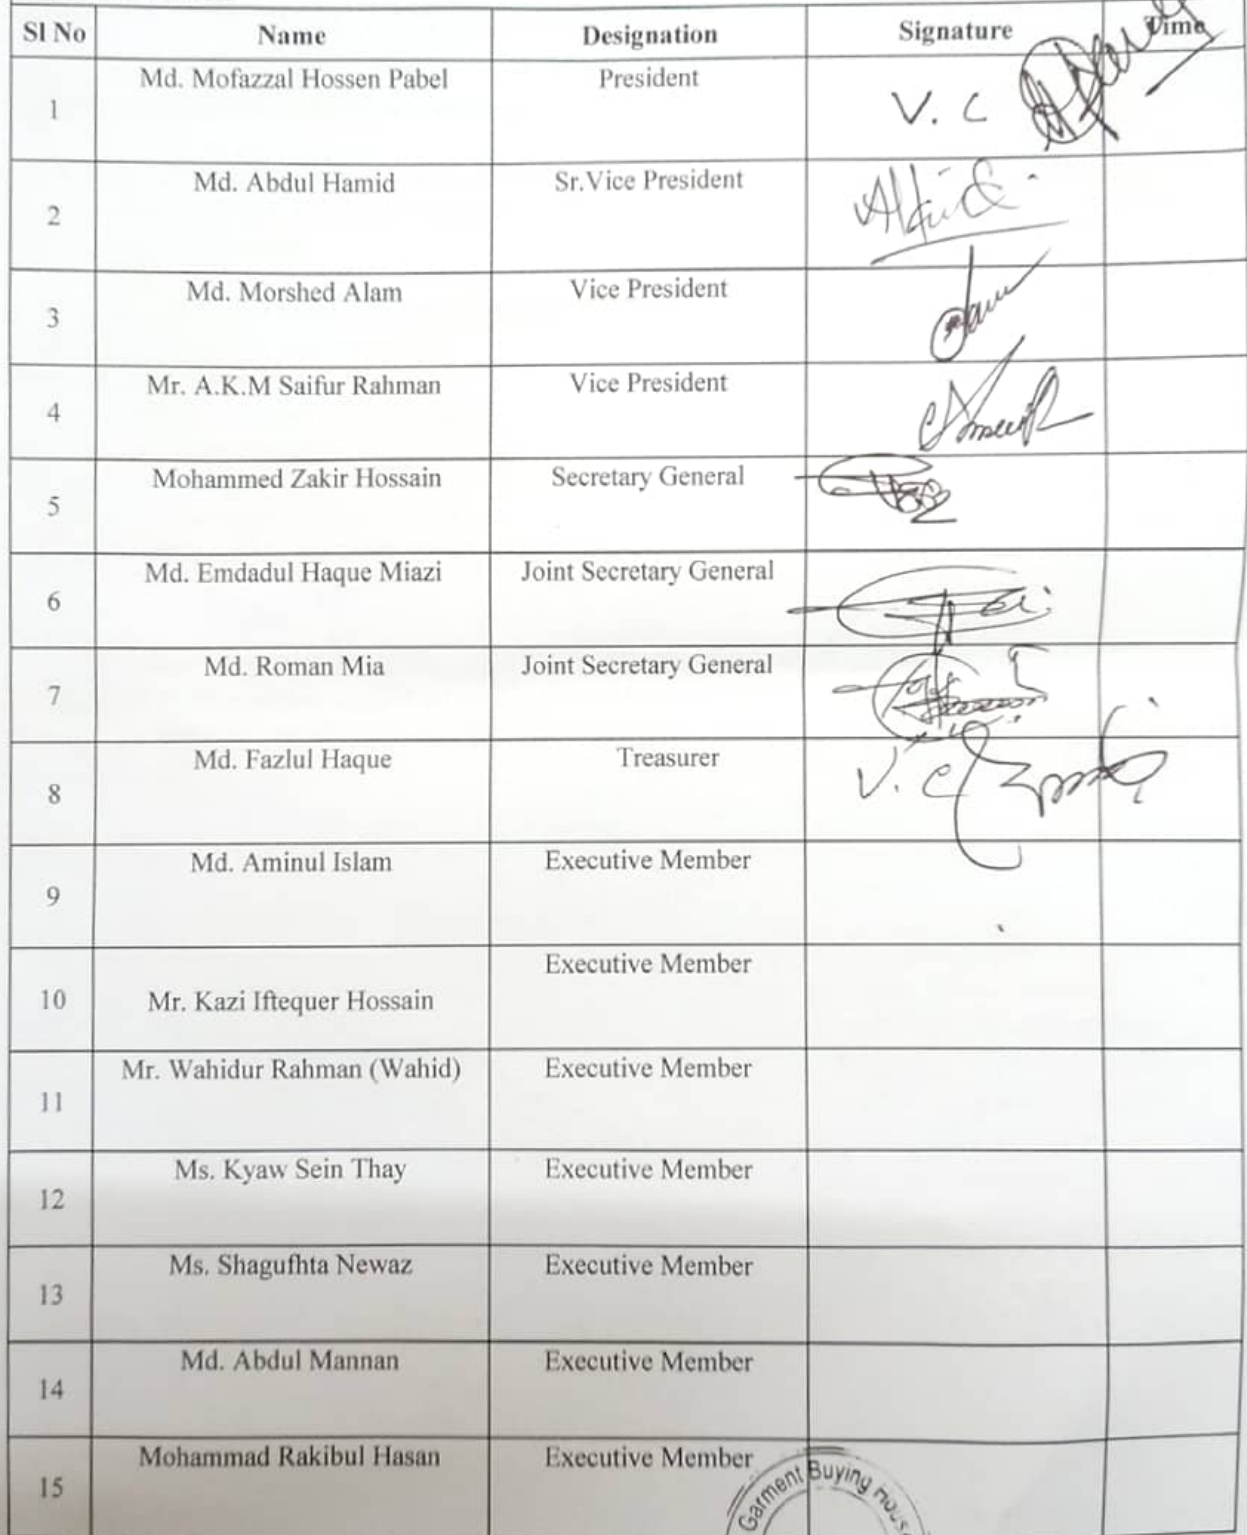 Sl No Name Designation Signature Time
1 Md. Mofazzal Hossen Pabel President V. C
2 Md. Abdul Hamid Sr.Vice President
3 Md. Morshed Alam Vice President
4 Mr. A.K.M Saifur Rahman Vice President
5 Mohammed Zakir Hossain Secretary General
6 Md. Emdadul Haque Miazi Joint Secretary General
7 Md. Roman Mia Joint Secretary General
8 Md. Fazlul Haque Treasurer V. C
9 Md. Aminul Islam Executive Member
10 Mr. Kazi Iftequer Hossain Executive Member
11 Mr. Wahidur Rahman (Wahid) Executive Member
12 Ms. Kyaw Sein Thay Executive Member
13 Ms. Shagufhta Newaz Executive Member
14 Md. Abdul Mannan Executive Member
15 Mohammad Rakibul Hasan Executive Member
Garment Buying Hous